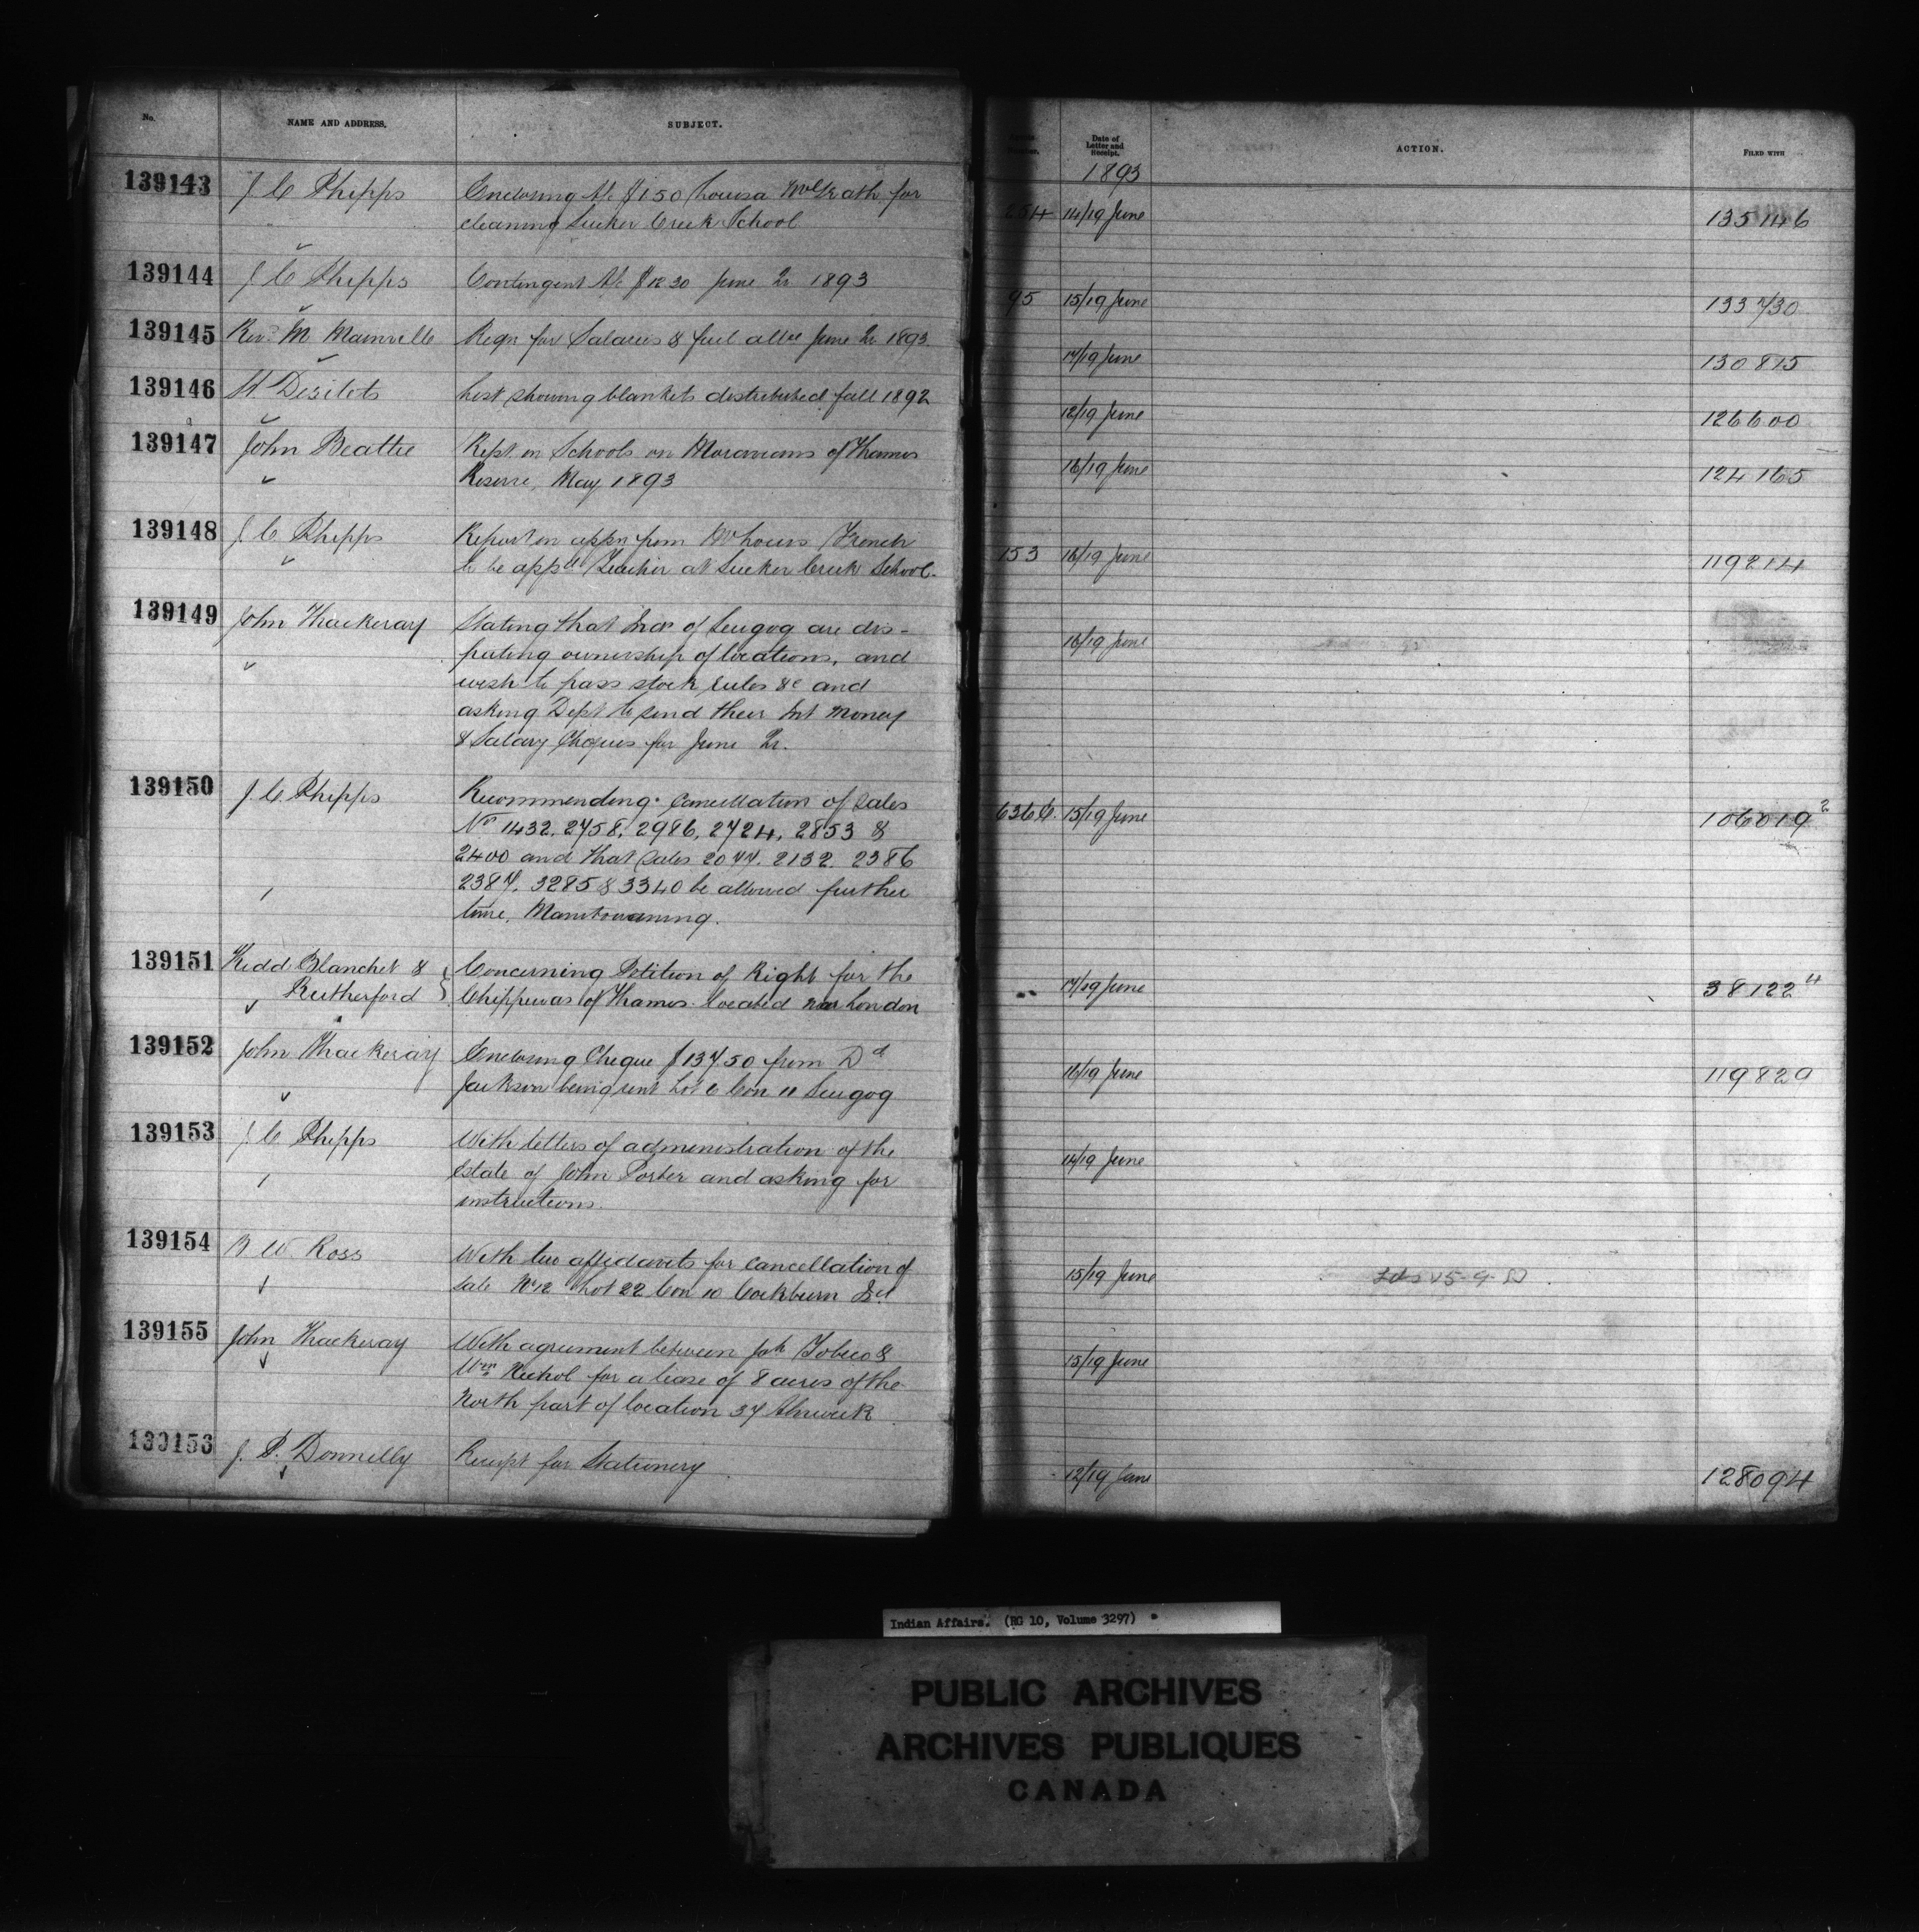 No. NAME AND ADDRESS. SUBJECT.
139143 J C Phipps Enclosing A/c $1.50 Louisa McGrath for
cleaning Sucker Creek School
139144 J C Phipps Contingent A/c $12.30 June Qr 1893
139145 Rev. M Mainville Reqn for Salaries & fuel allce June Qr 1893.
139146 H. Desilets List showing blankets distributed fall 1892
139147 John Beattie Rept. on Schools on Moravians of Thames
Reserve, May 1893
139148 J C Phipps Report on appn from Louis French
to be appd Teacher at Sucker Creek School.
139149 John Thackeray Stating that Inds of Scugog are dis-
puting ownership of locations, and
wish to pass stock rules &c and
asking Dept to send their Int money
& Salary Cheques for June Qr.
139150 J. C. Phipps Recommending cancellation of Sales
No 1432. 2758. 2986. 2724. 2853 &
2400 and that Sales 2077. 2132. 2386
2387. 3285 & 3340 be allowed further
time. Manitowaning.
139151 Kidd Blanchet & Concerning Petition of Right for the
Rutherford Chippewas of Thames located near London
139152 John Thackeray Enclosing Cheque $137.50 from Dd
Jackson being rent Lot 6 Con 11 Scugog
139153 J C Phipps With letters of administration of the
Estate of John Porter and asking for
instructions.
139154 B W Ross With two affidavits for cancellation of
Sale No 12 Lot 22 Con 10 Cockburn Isd
139155 John Thackeray With agreement between Joh Tobico &
Wm Nichol for a lease of 8 acres of the
North part of location 37 Alnwick
139156 J. P. Donnelly Receipt for Stationery
Date of
Letter and
Receipt. ACTION. FILED WITH
1893
254 14/19 June 135146
95 15/19 June 133730
17/19 June 130815
12/19 June 126600
16/19 June 124165
153 16/19 June 119214
16/19 June
636 C. 15/19 June 106019 2
17/19 June 38122 4
16/19 June 119829
14/19 June
15/19 June
15/19 June
12/19 June 128094
Indian Affairs. (RG 10, Volume 3297)
PUBLIC ARCHIVES
ARCHIVES PUBLIQUES
CANADA